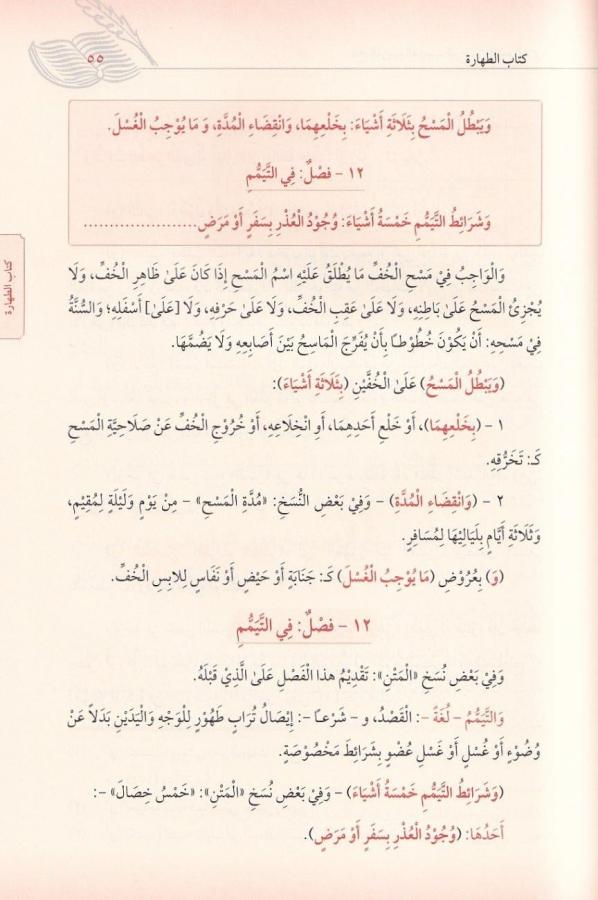 كتاب الطهارة
٥٥
وَيَبْطُلُ الْمَسْحُ بِثَلَاثَةِ أَشْيَاءَ: بِخَلْعِهِمَا، وَانْقِضَاءِ الْمُدَّةِ، وَ مَا يُوْجِبُ الْغُسْلَ.
١٢ - فَصْلٌ: فِي التَّيَمُّمِ
وَشَرَائِطُ التَّيَمُّمِ خَمْسَةُ أَشْيَاءَ: وُجُوْدُ الْعُذْرِ بِسَفَرٍ أَوْ مَرَضٍ......................
كتاب الطهارة
وَالْوَاجِبُ فِيْ مَسْحِ الْخُفِّ مَا يُطْلَقُ عَلَيْهِ اسْمُ الْمَسْحِ إِذَا كَانَ عَلَىٰ ظَاهِرِ الْخُفِّ، وَلَا
يُجْزِئُ الْمَسْحُ عَلَىٰ بَاطِنِهِ، وَلَا عَلَىٰ عَقِبِ الْخُفِّ، وَلَا عَلَىٰ حَرْفِهِ، وَلَا [عَلَىٰ] أَسْفَلِهِ؛ وَالسُّنَّةُ
فِيْ مَسْحِهِ: أَنْ يَكُوْنَ خُطُوْطًا بِأَنْ يُفَرِّجَ الْمَاسِحُ بَيْنَ أَصَابِعِهِ وَلَا يَضُمَّهَا.
(وَيَبْطُلُ الْمَسْحُ) عَلَىٰ الْخُفَّيْنِ (بِثَلَاثَةِ أَشْيَاءَ):
١ - (بِخَلْعِهِمَا)، أَوْ خَلْعِ أَحَدِهِمَا، أَوِ انْخِلَاعِهِ، أَوْ خُرُوْجِ الْخُفِّ عَنْ صَلَاحِيَّةِ الْمَسْحِ
كَـ: تَخَرُّقِهِ.
٢ - (وَانْقِضَاءِ الْمُدَّةِ) - وَفِيْ بَعْضِ النُّسَخِ: «مُدَّةِ الْمَسْحِ» - مِنْ يَوْمٍ وَلَيْلَةٍ لِمُقِيْمٍ،
وَثَلَاثَةِ أَيَّامٍ بِلَيَالِيْهَا لِمُسَافِرٍ.
(وَ) بِعُرُوْضِ (مَا يُوْجِبُ الْغُسْلَ) كَـ: جَنَابَةٍ أَوْ حَيْضٍ أَوْ نَفَاسٍ لِلابِسِ الْخُفِّ.
١٢ - فَصْلٌ: فِي التَّيَمُّمِ
وَفِيْ بَعْضِ نُسَخِ «الْمَتْنِ»: تَقْدِيْمُ هذا الْفَصْلِ عَلَىٰ الَّذِيْ قَبْلَهُ.
وَالتَّيَمُّمُ - لُغَةً -: الْقَصْدُ، وَ - شَرْعًا -: إِيْصَالُ تُرَابٍ طَهُوْرٍ لِلْوَجْهِ وَالْيَدَيْنِ بَدَلًا عَنْ
وُضُوْءٍ أَوْ غُسْلٍ أَوْ غَسْلِ عُضْوٍ بِشَرَائِطَ مَخْصُوْصَةٍ.
(وَشَرَائِطُ التَّيَمُّمِ خَمْسَةُ أَشْيَاءَ) - وَفِيْ بَعْضِ نُسَخِ «الْمَتْنِ»: «خَمْسُ خِصَالَ» -:
أَحَدُهَا: (وُجُوْدُ الْعُذْرِ بِسَفَرٍ أَوْ مَرَضٍ).